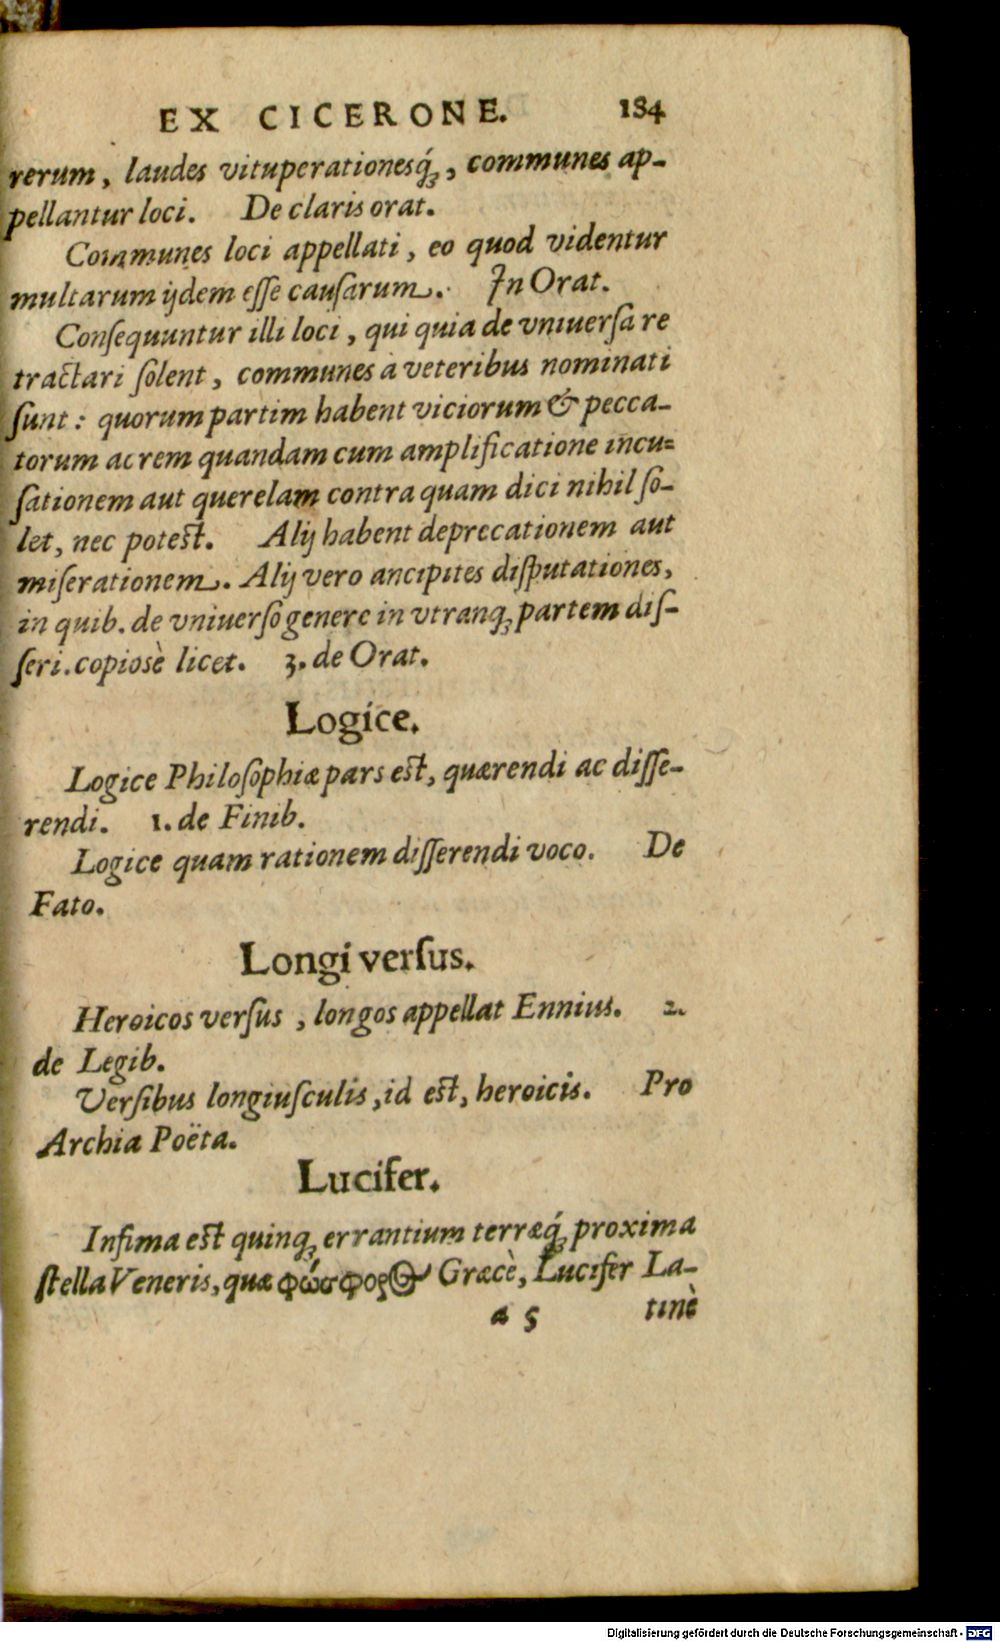 EX CICERONE. 184
rerum, laudes vituperationesq́;, communes ap-
pellantur loci. De claris orat.
Communes loci appellati, eo quod videntur
multarum ijdem eſſe cauſarum. In Orat.
Conſequuntur illi loci, qui quia de vniuerſa re
tractari ſolent, communes à veteribus nominati
ſunt: quorum partim habent viciorum & pecca-
torum acrem quandam cum amplificatione incu-
ſationem aut querelam contra quam dici nihil ſo-
let, nec poteſt. Alij habent deprecationem aut
miſerationem. Alij vero ancipites diſputationes,
in quib. de vniuerſo genere in vtranq; partem diſ-
ſeri. copiosè licet. 3. de Orat.
Logice.
Logice Philoſophiæ pars eſt, quærendi ac diſſe-
rendi. 1. de Finib.
Logice quam rationem diſſerendi voco. De
Fato.
Longi verſus.
Heroicos verſus, longos appellat Ennius. 2.
de Legib.
Verſibus longiuſculis, id eſt, heroicis. Pro
Archia Poëta.
Lucifer.
Infima eſt quinq; errantium terræq́; proxima
ſtella Veneris, quæ φώσφορος Græcè, Lucifer La-
a 5 tinè
Digitalisierung gefördert durch die Deutsche Forschungsgemeinschaft - DFG